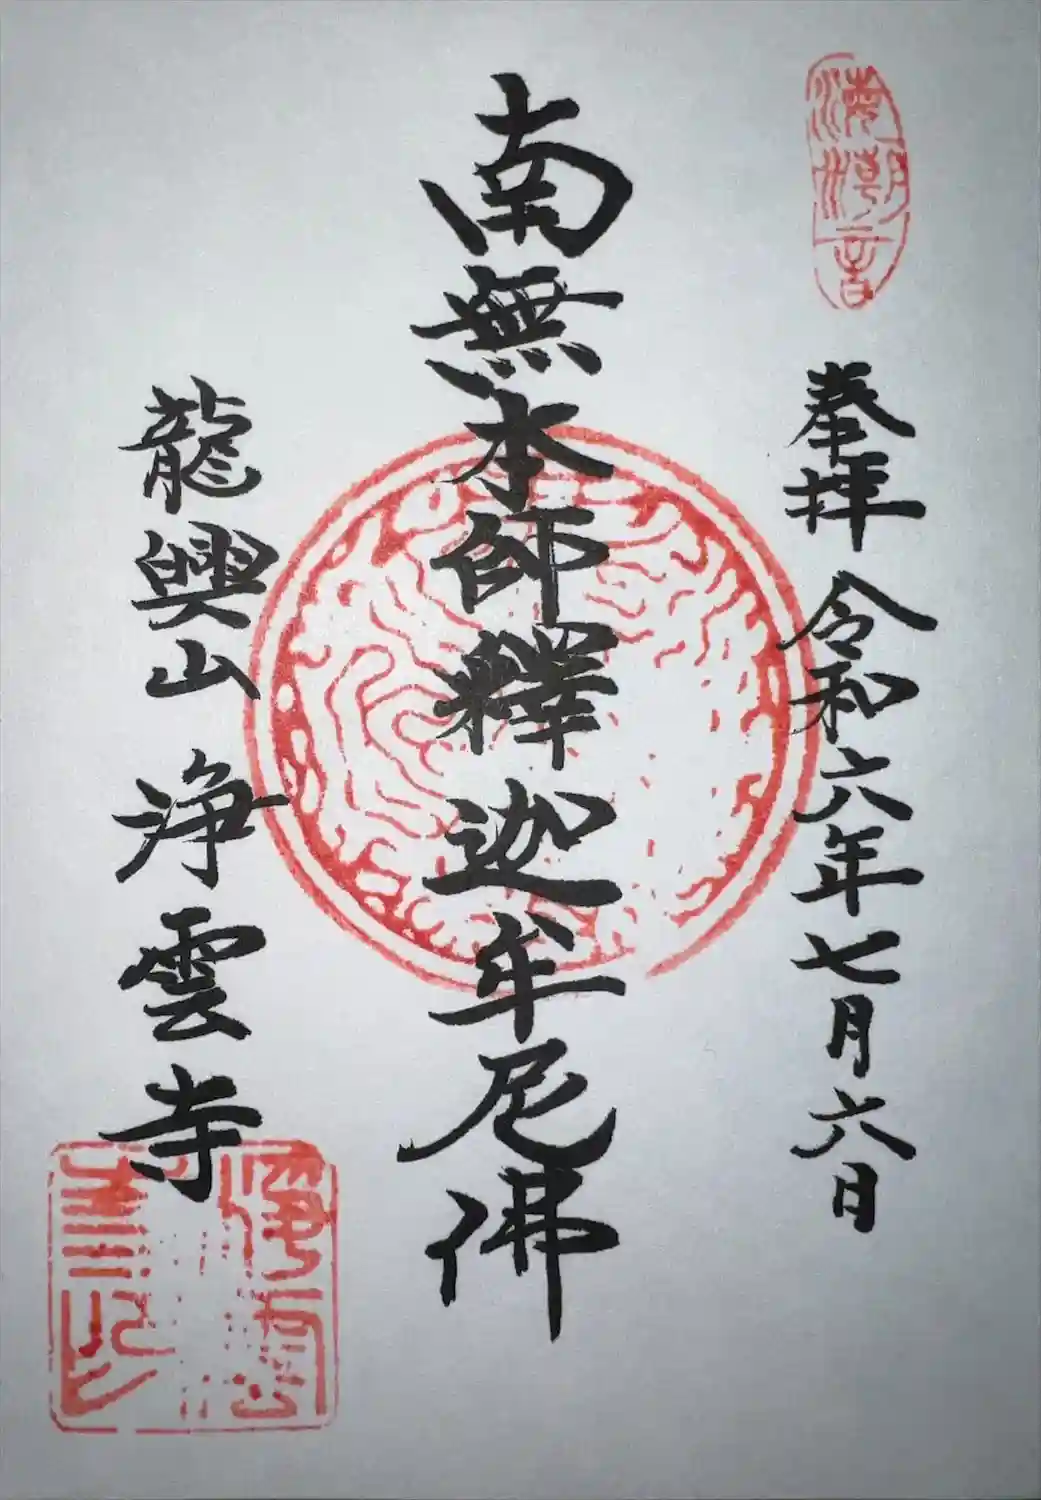 海潮音
奉拝 令和六年七月六日
南無本師釋迦牟尼佛
龍興山 浄雲寺